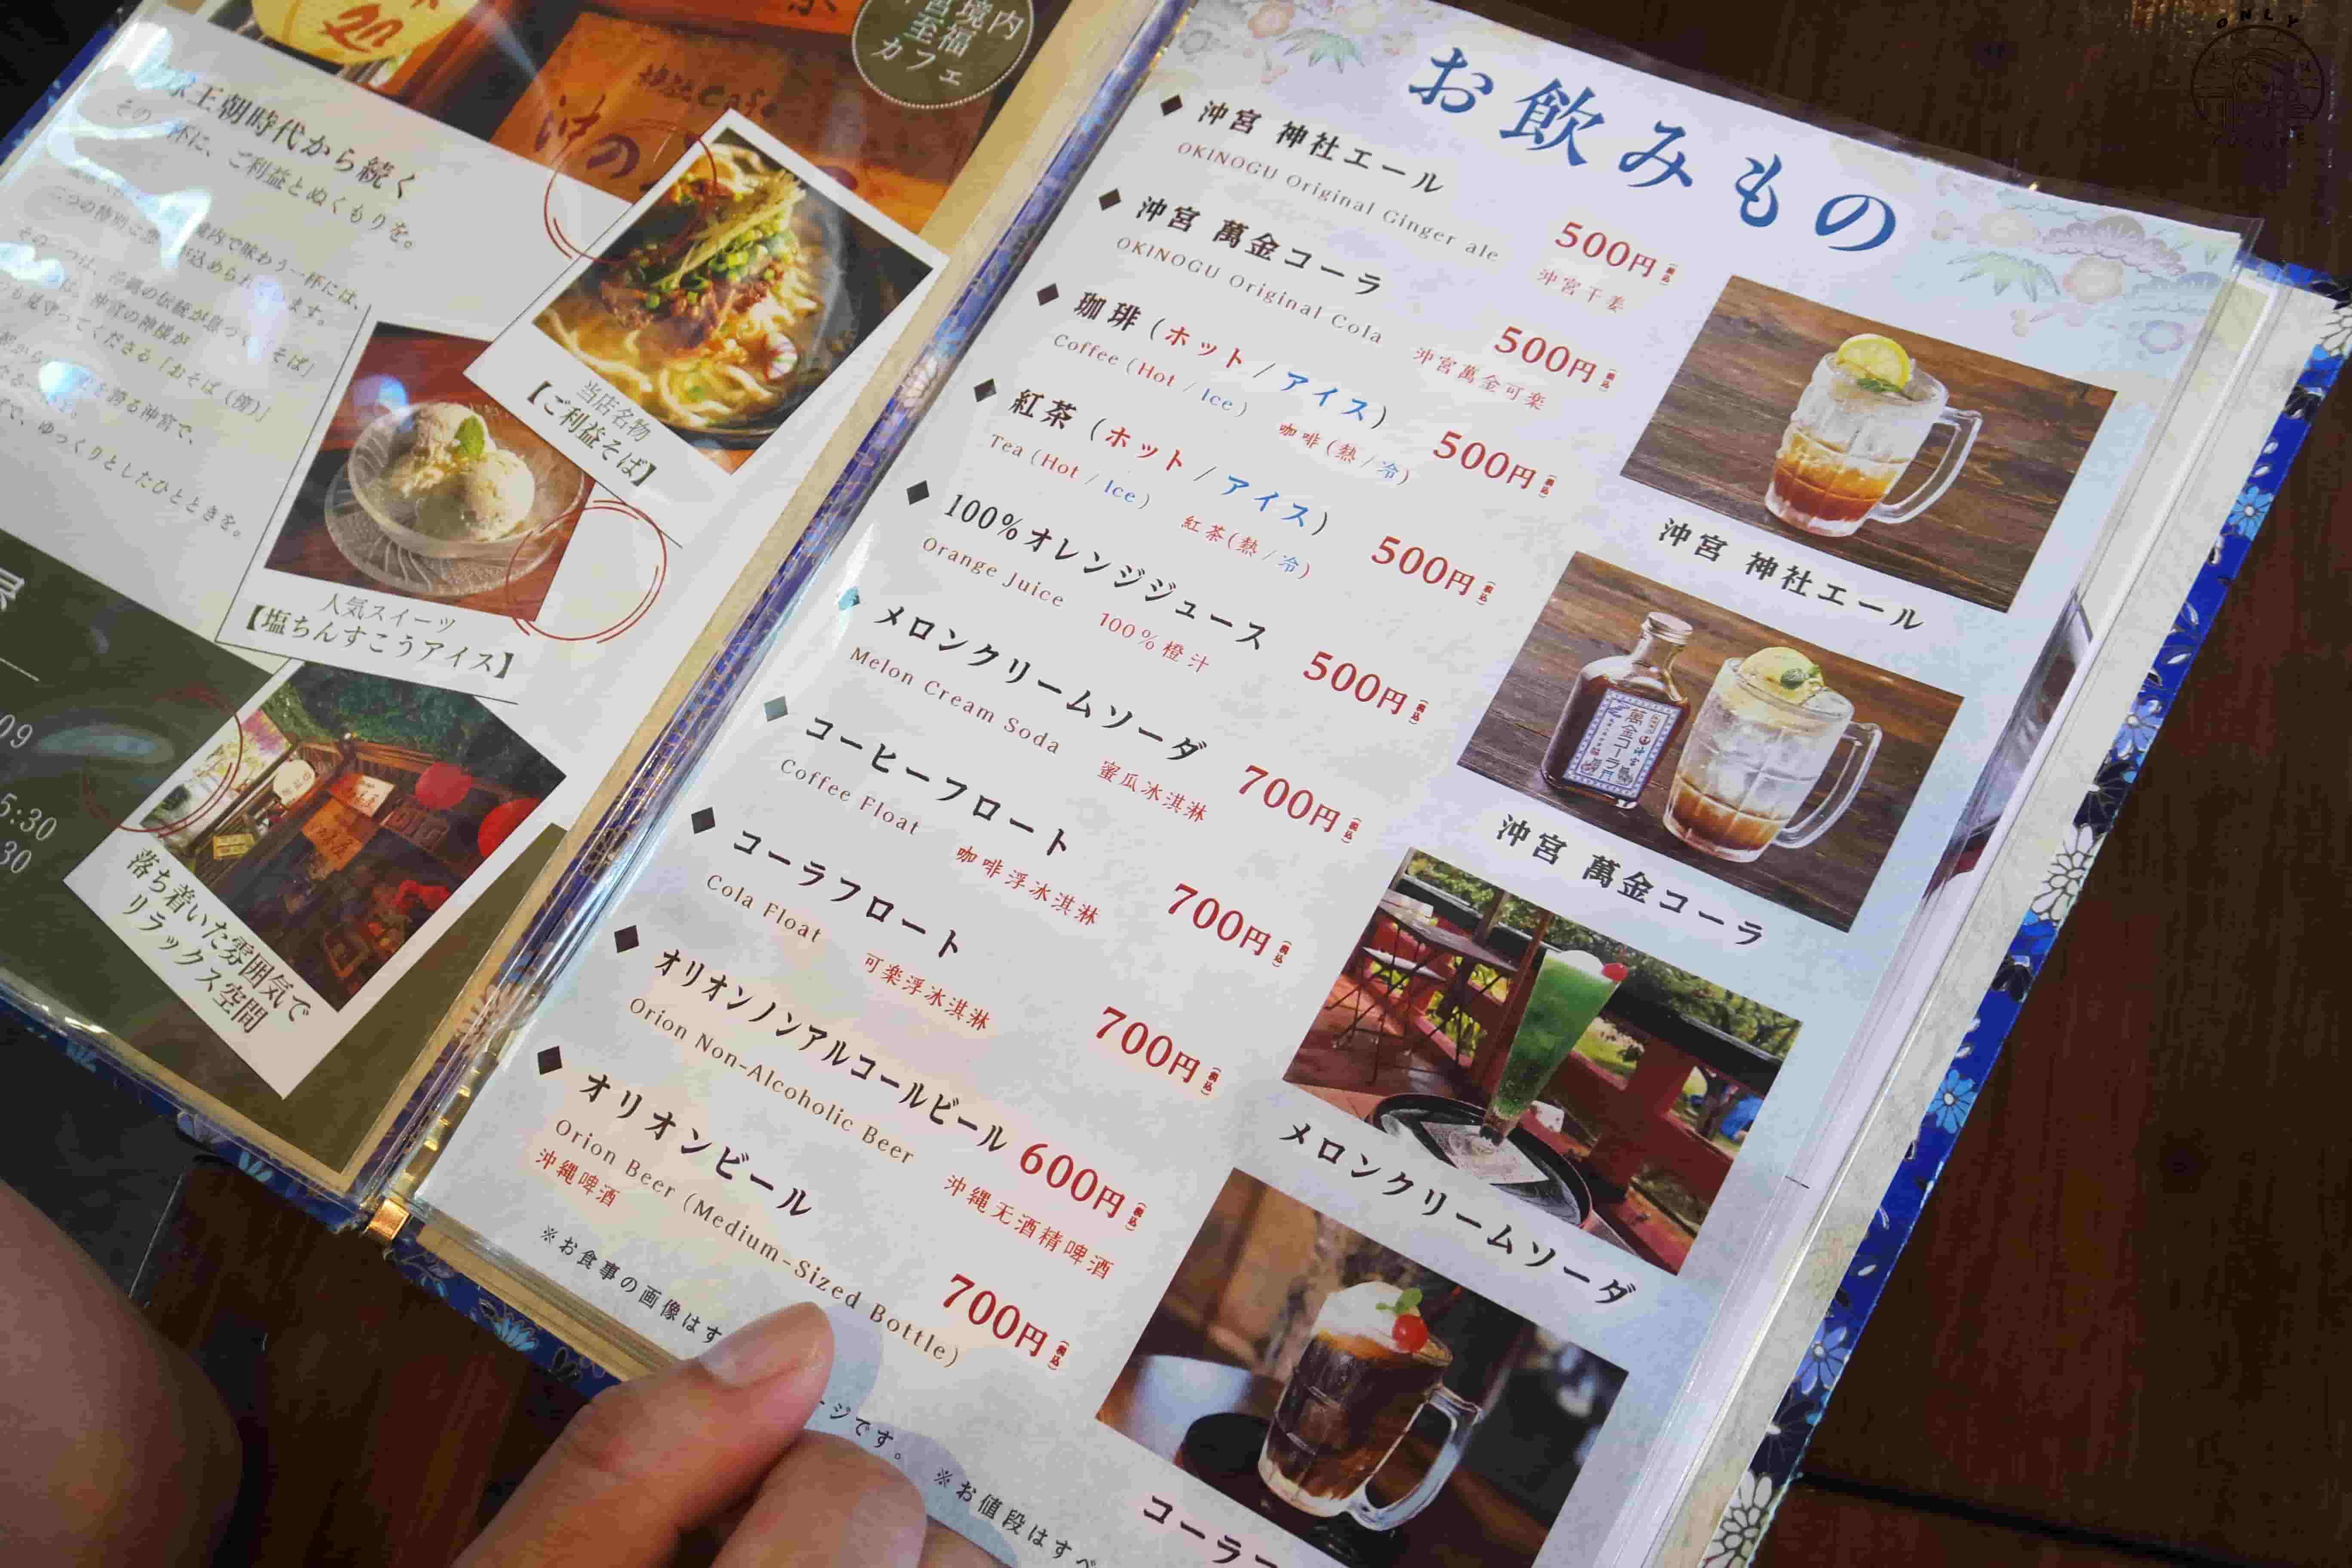 内
福
カフェ
神社Cafe
沖の
王朝時代から続く
その一杯に、ご利益とぬくもりを。
境内で味わう一杯には、
沖宮の神様が
見守ってくださる「おそば(傍)」
を誇る沖宮で、
ゆっくりとしたひとときを。
当店名物
【ご利益そば】
人気スイーツ
【塩ちんすこうアイス】
落ち着いた雰囲気で
リラックス空間
09
5:30
30
お飲みもの
◆ 沖宮 神社エール 500円(税込)
OKINOGU Original Ginger ale 沖宮干姜
◆ 沖宮 萬金コーラ 500円(税込)
OKINOGU Original Cola 沖宮萬金可楽
◆ 珈琲(ホット/アイス) 500円(税込)
Coffee (Hot / Ice) 咖啡(熱/冷)
◆ 紅茶(ホット/アイス) 500円(税込)
Tea (Hot / Ice) 紅茶(熱/冷)
◆ 100%オレンジジュース 500円(税込)
Orange Juice 100%橙汁
◆ メロンクリームソーダ 700円(税込)
Melon Cream Soda 蜜瓜冰淇淋
◆ コーヒーフロート 700円(税込)
Coffee Float 咖啡浮冰淇淋
◆ コーラフロート 700円(税込)
Cola Float 可楽浮冰淇淋
◆ オリオンノンアルコールビール 600円(税込)
Orion Non-Alcoholic Beer 沖縄无酒精啤酒
◆ オリオンビール 700円(税込)
Orion Beer (Medium-Sized Bottle)
沖縄啤酒
※お食事の画像はす
ージです。 ※お値段はすべ
沖宮 神社エール
萬金コーラ
沖宮 萬金コーラ
メロンクリームソーダ
コーラフ
ONLY